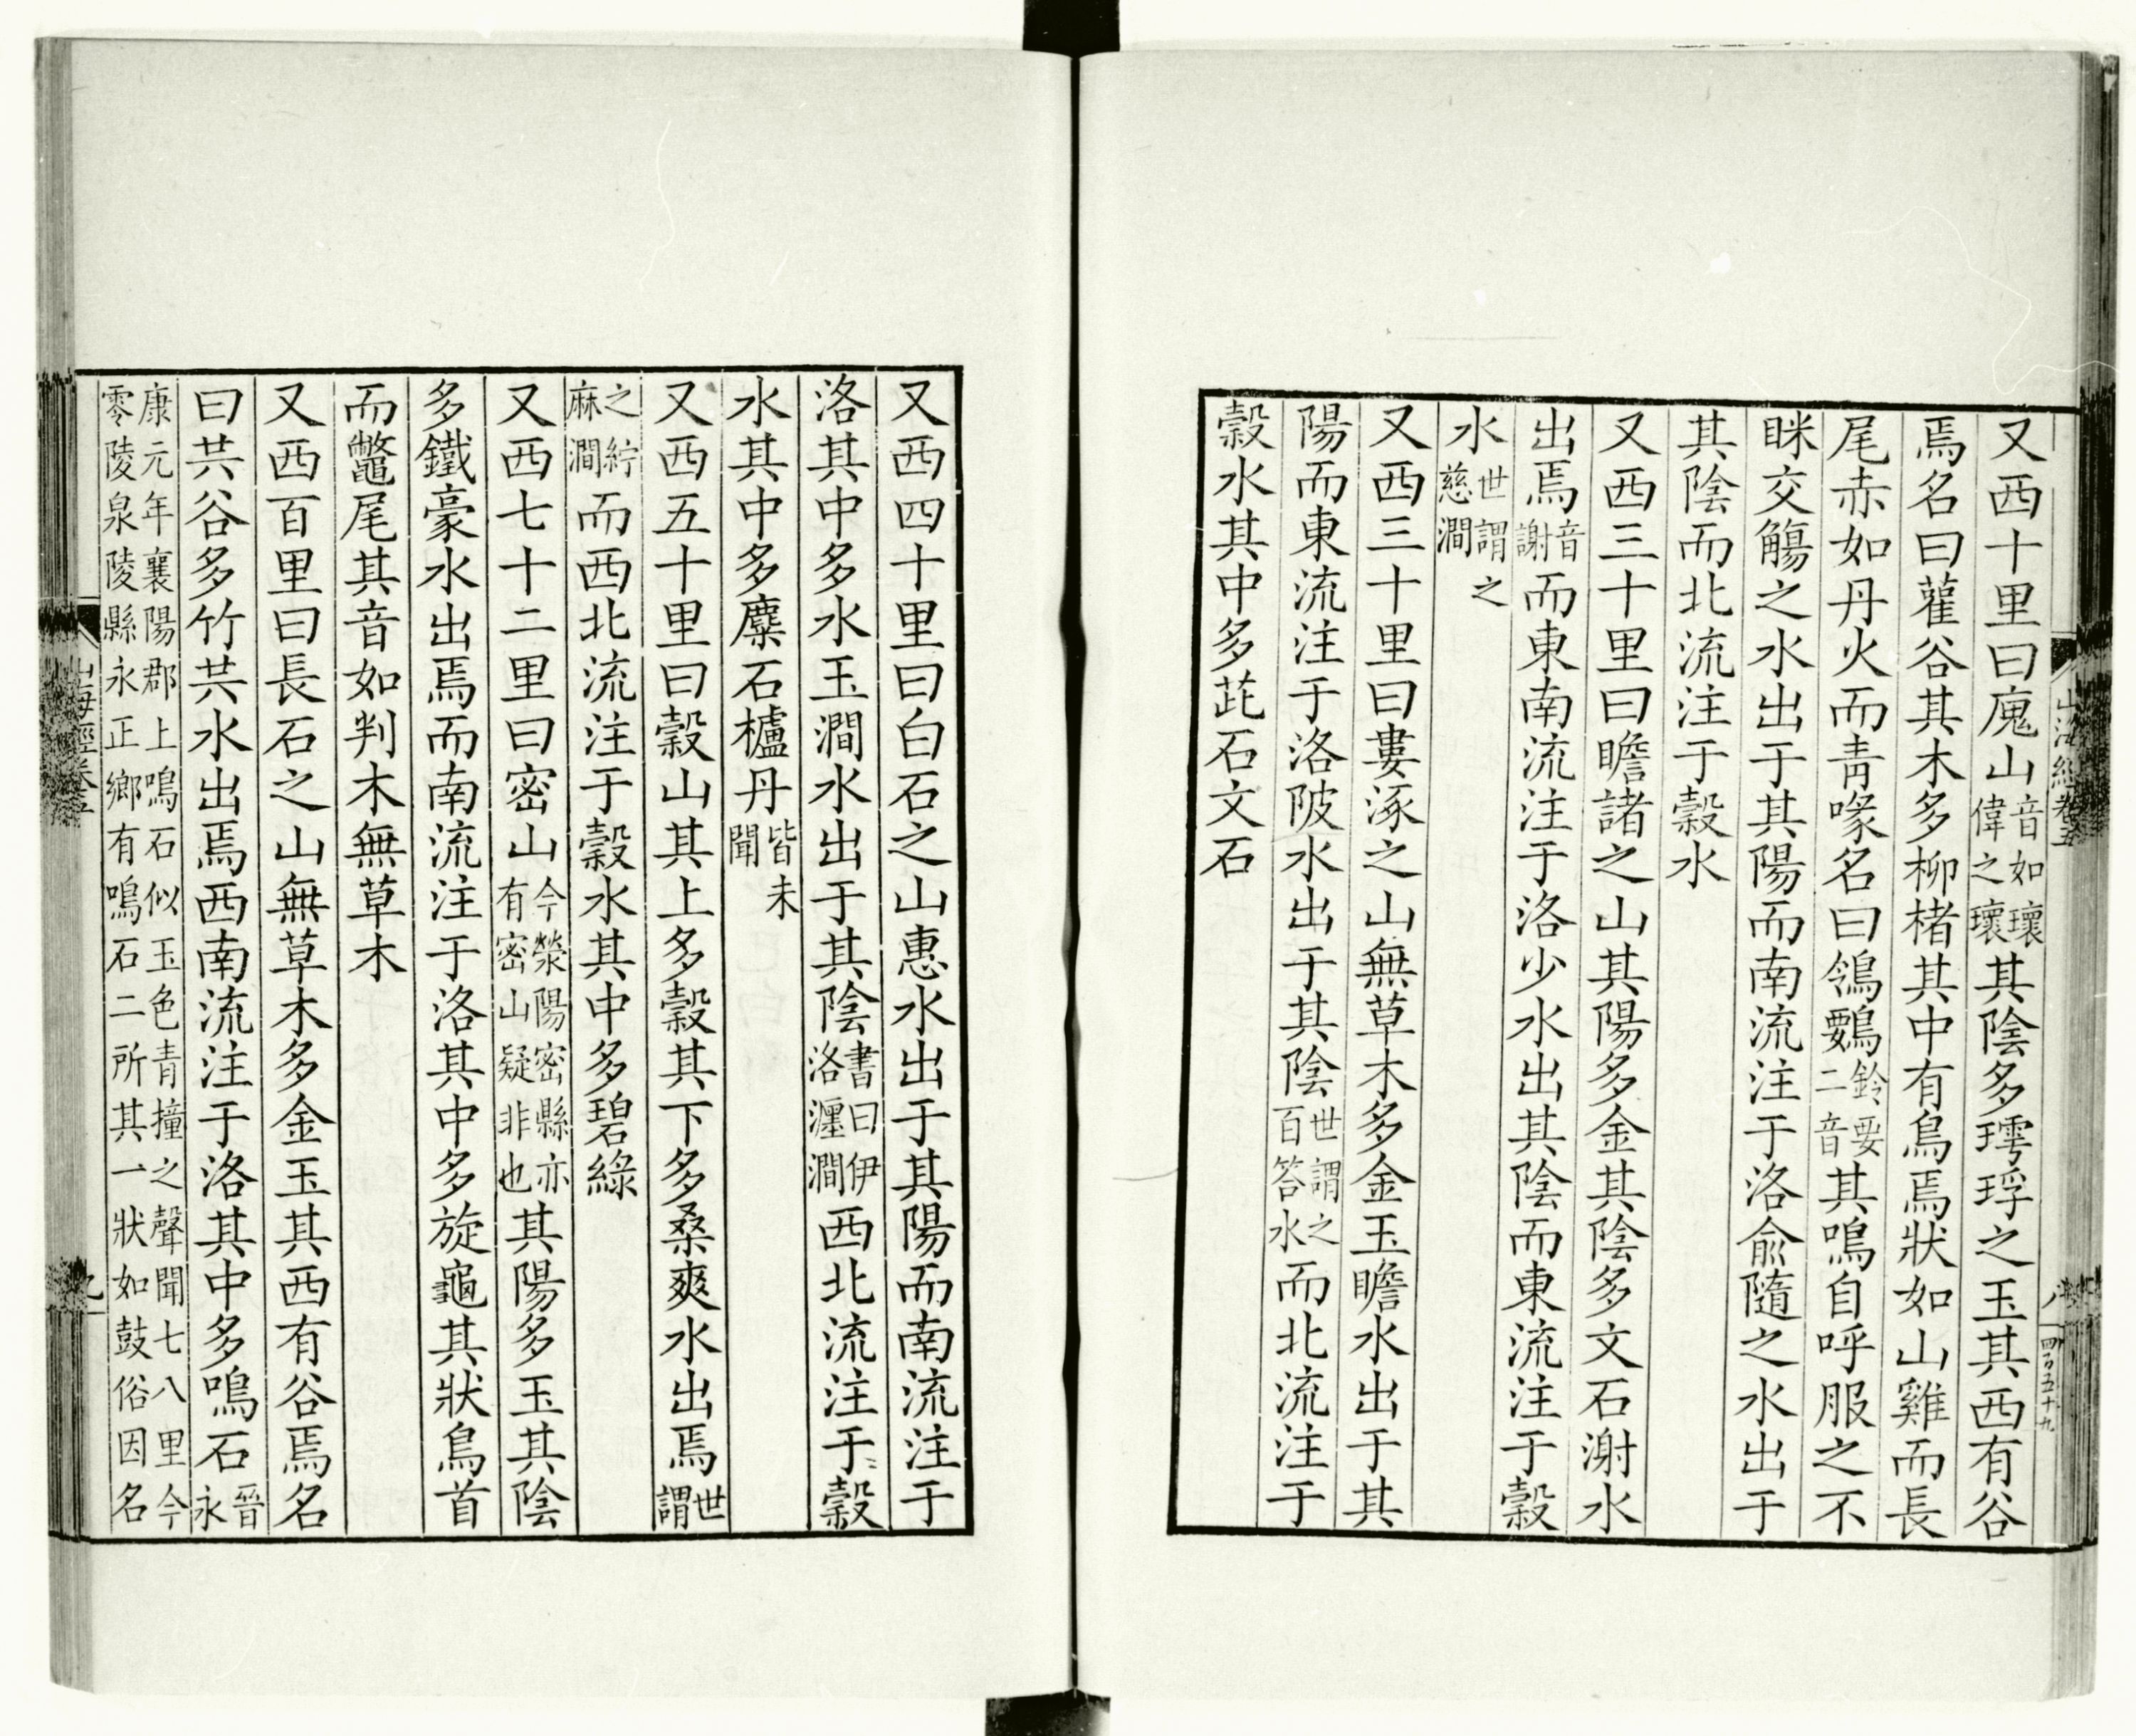 又西十里曰廆山音如瓌偉之瓌其陰多㻬琈之玉其西有谷
焉名曰雚谷其木多柳楮其中有鳥焉狀如山雞而長
尾赤如丹火而青喙名曰鴒䴈鈴要二音其鳴自呼服之不
眯交觴之水出于其陽而南流注于洛俞隨之水出于
其陰而北流注于穀水
又西三十里曰瞻諸之山其陽多金其陰多文石㴬水
出焉音謝而東南流注于洛少水出其陰而東流注于穀
水世謂之慈澗
又西三十里曰婁涿之山無草木多金玉瞻水出于其
陽而東流注于洛陂水出于其陰世謂之百答水而北流注于
穀水其中多茈石文石
山海經卷五
八
四百五十九
又西四十里曰白石之山惠水出于其陽而南流注于
洛其中多水玉澗水出于其陰書曰伊洛瀍澗西北流注于穀
水其中多麋石櫨丹皆未聞
又西五十里曰穀山其上多穀其下多桑爽水出焉世謂
之紵麻澗而西北流注于穀水其中多碧綠
又西七十二里曰密山今滎陽密縣亦有密山疑非也其陽多玉其陰
多鐵豪水出焉而南流注于洛其中多旋龜其狀鳥首
而鼈尾其音如判木無草木
又西百里曰長石之山無草木多金玉其西有谷焉名
曰共谷多竹共水出焉西南流注于洛其中多鳴石晉永
康元年襄陽郡上鳴石似玉色青撞之聲聞七八里今
零陵泉陵縣永正鄉有鳴石二所其一狀如鼓俗因名
山海經卷五
九